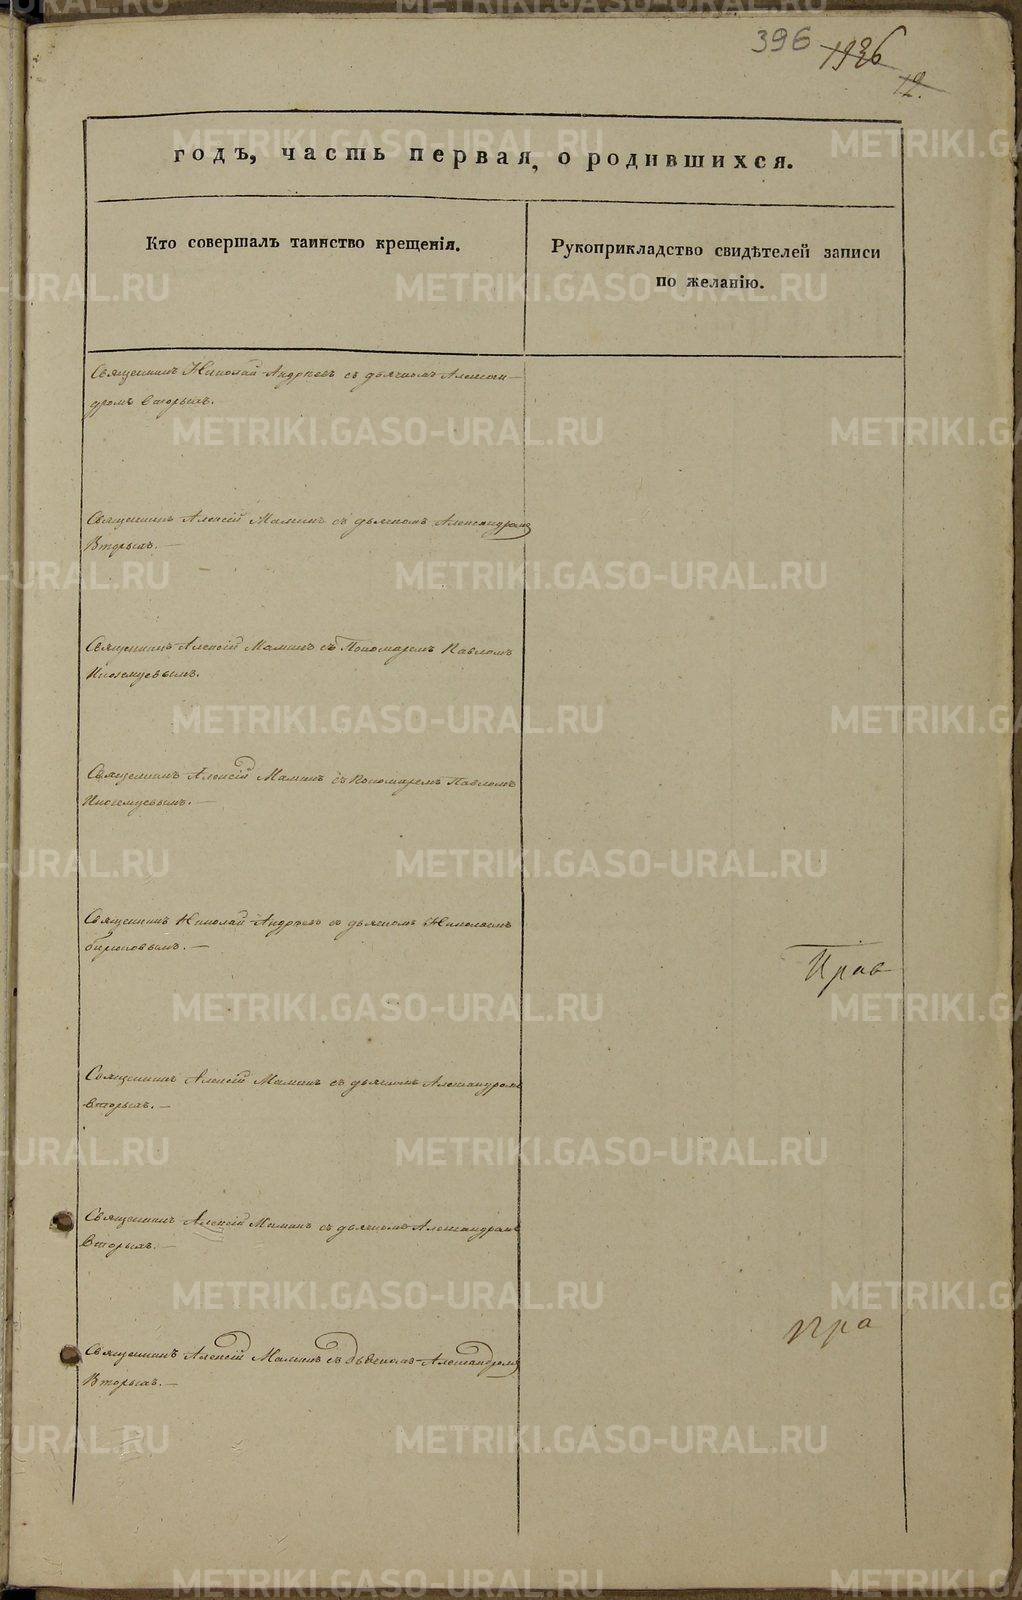 396 1936
12.
годъ, часть первая, о родившихся.
Кто совершалъ таинство крещенія.
Рукоприкладство свидѣтелей записи
по желанію.
Священникъ Николай Андреевъ съ дьячкомъ Алексан-
дромъ Вторымъ.
Священникъ Алексій Маминъ съ дьячкомъ Александромъ
Вторымъ. —
Священникъ Алексій Маминъ съ Пономаремъ Павломъ
Иноземцевымъ.
Священникъ Алексій Маминъ съ Пономаремъ Павломъ
Иноземцевымъ. —
Священникъ Николай Андреевъ съ дьячкомъ Николаемъ
Бирюковымъ. —
Прав
Священникъ Алексій Маминъ съ дьячкомъ Александромъ
Вторымъ. —
Священникъ Алексій Маминъ съ дьячкомъ Александромъ
Вторымъ. —
пра
Священникъ Алексій Маминъ съ дьячкомъ Александромъ
Вторымъ. —
METRIKI.GASO-URAL.RU